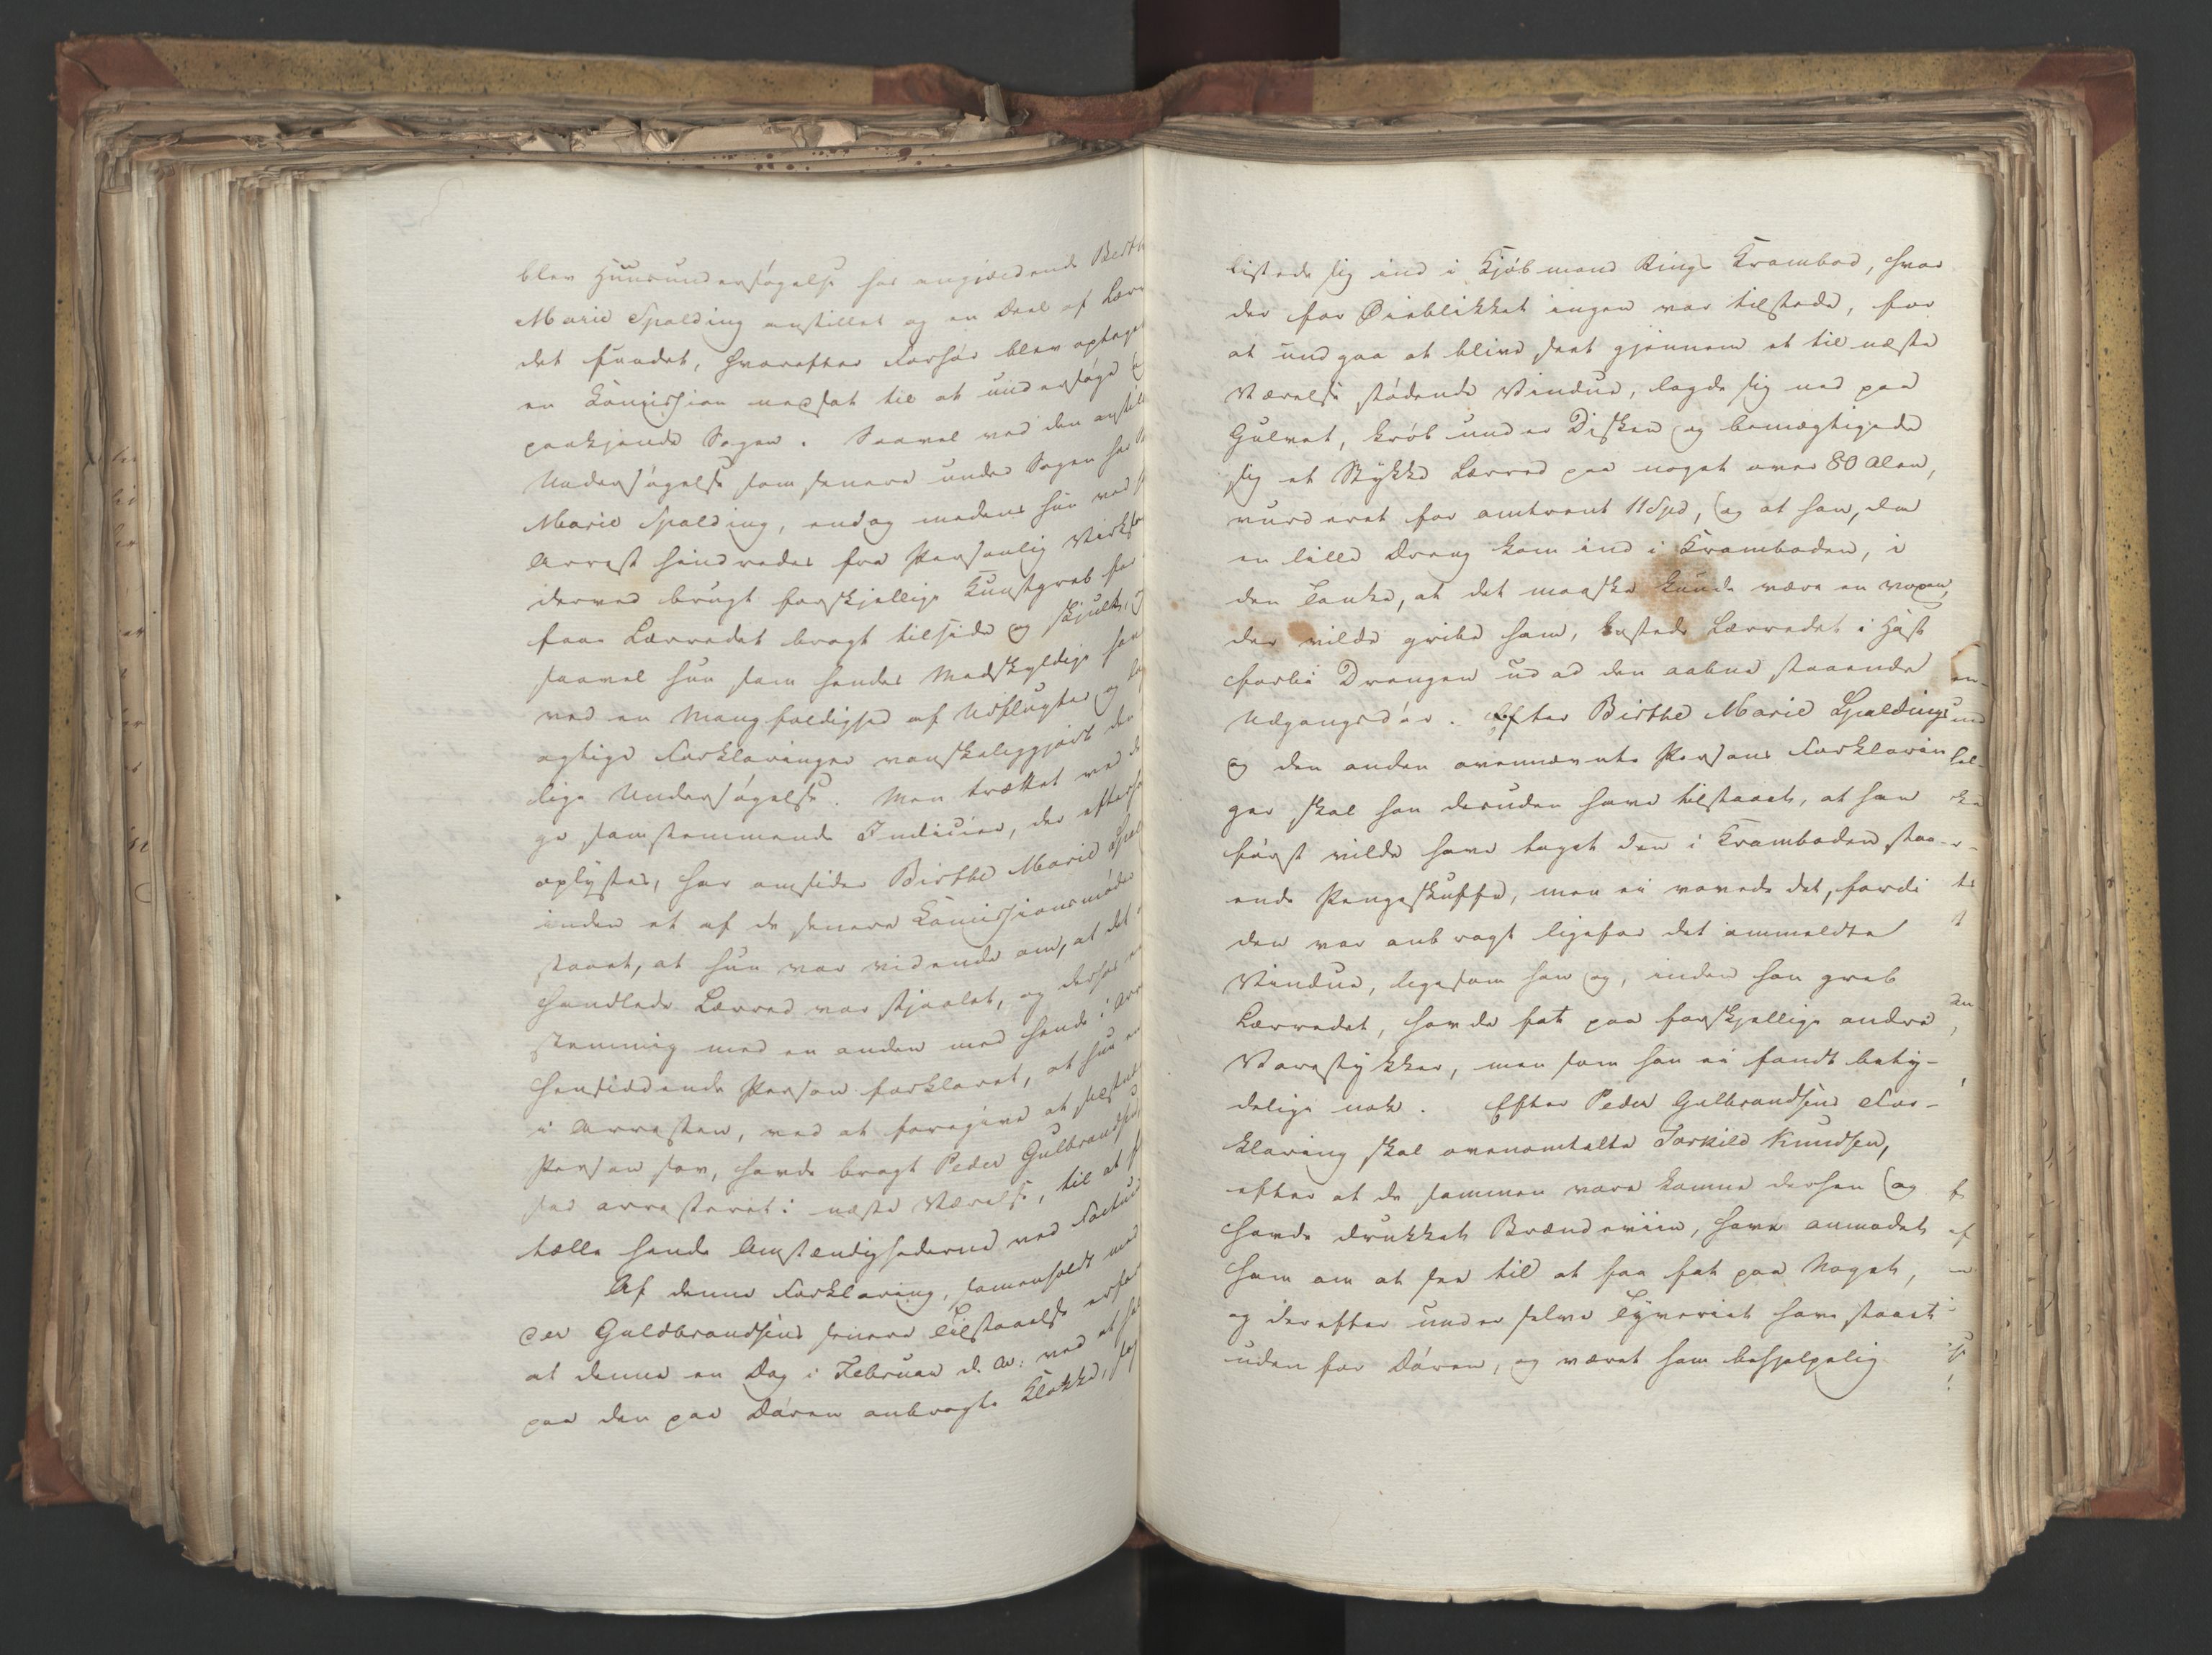 blev Huusundersøgelse hos angjældende Birth
Marie Spalding anstillet og en Deel af Lærre
det fundet, hvorefter Forhør blev optaget
en Commission nedsat til at undersøge og
paakjende Sagen. Saavel ved den anstil
Undersøgelse som senere under Sagen har
Marie Spalding, endog medens hun ved
Arrest hindredes fra Personlig Virksom
derved brugt forskjellige Kunstgreb for
faae Lærredet bragt tilside og skjult, og
saavel hun som hendes Medskyldige have
ved en Mangfoldighed af Udflugter og
agtige Forklaringer vanskeliggjort den
lige Undersøgelse. Men trættet ved de
ge samstemmende Indicier, der efterh
oplystes, har omsider Birthe Marie Spal
inden et af de senere Commissionsmøder
staaet, at hun var vidende om, at det
handlede Lærred var stjaalet, og derhos
stemmig med en anden med hende i Arr
hensiddende Person forklaret, at hun
i Arresten, ved at foregive at sidstn
Person sov, havde bragt Peder Gulbrandsen
sad arresteret i næste Værelse, til at
tælle hende Omstændighederne ved Factum
Af denne Forklaring, sammenholdt med
der Guldbrandsens senere Tilstaaelse erfar
at denne en Dag i Februar d. A. ved at
paa den paa Døren anbragte Klokke,
listede sig ind i Kjøbmand Rings Krambod, hvor
der for Øieblikket ingen var tilstede, for
at undgaa at blive seet gjennem et til næste
Værelse stødende Vindue, lagde sig ned paa
Gulvet, krøb under Disken og bemægtigede
sig et Stykke Lærred paa noget over 80 Alen,
vurderet for omtrent 11 Spd, og at han, da
en lille Dreng kom ind i Kramboden, i
den Tanke, at det maaske kunde være en voxen,
der vilde gribe ham, kastede Lærredet i Hast
forbi Drengen ud ad den aabne staaende
Udgangsdør. Efter Birthe Marie Spaldings
og den anden ovennævnte Persons Forklarin
ger skal han desuden have tilstaaet, at han
først vilde have taget den i Kramboden staa-
ende Pengeskuffe, men ei vovede det, fordi
den var anbragt ligefor det ommeldte
Vindue, ligesom han og, inden han greb
Lærredet, havde fat paa forskjellige andre
Varestykker, men som han ei fandt bety-
delige nok. Efter Peder Gulbrandsens For-
klaring skal ovenomtalte Torkild Knudsen,
efter at de sammen vare komne derhen og
havde drukket Brændeviin, have anmodet
ham om at see til at faa fat paa Noget,
og derefter under selve Tyveriet have staaet
uden for Døren, og været ham behjelpelig